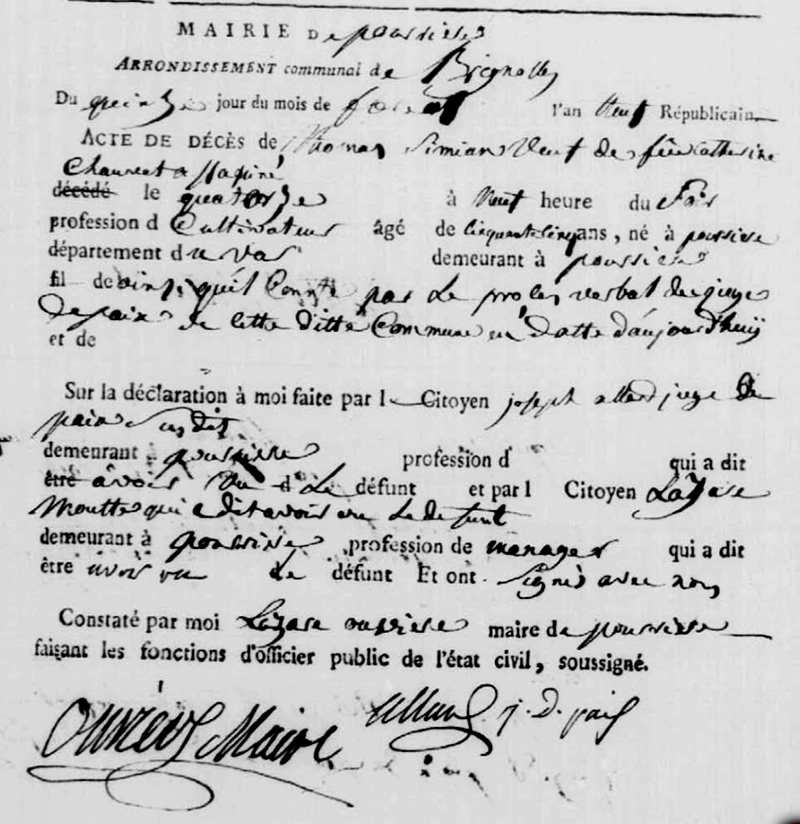 MAIRIE De pourrieres
ARRONDISSEMENT communal de Brignolles
Du quinze jour du mois de l'an neuf Républicain
ACTE DE DÉCÈS de Thomas Simian veuf de feue Catherine
décédé le quatorze à neuf heure du soir
profession d Cultivateur âgé de cinquante cinq ans, né à pourriere
département du var demeurant à pourrieres
fil de ainsi qu'il Conste par le proces verbal du juge
de paix de cette ditte Commune en datte d'aujourd'huy
et de
Sur la déclaration à moi faite par le Citoyen joseph allard juge de
paix susdit
demeurant pourriere profession d qui a dit
être avoir vu d Le défunt et par l Citoyen Lazare
Moutte qui a dit avoir vu le defunt
demeurant à pourriere profession de menager qui a dit
être avoir vu le défunt Et ont signés avec nous
Constaté par moi Lazare ouvriere maire de pourriere
faisant les fonctions d'officier public de l'état civil, soussigné.
Allard j. d. paix
Maire